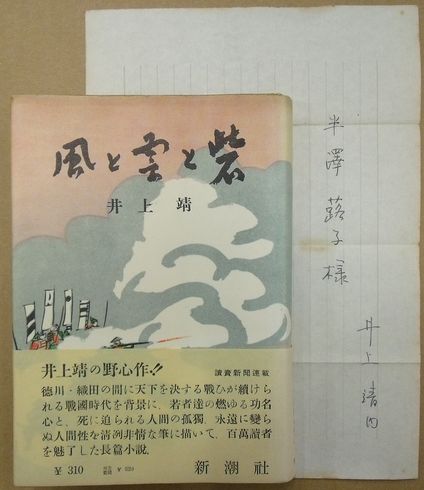 風と雲と砦
井上靖
井上靖の野心作!!
讀賣新聞連載
徳川・織田の間に天下を決する戰ひが續けら
れる戰國時代を背景に、若者達の燃ゆる功名
心と、死に追られる人間の孤獨、永遠に變ら
ぬ人間性を清冽非情な筆に描いて、百萬讀者
を魅了した長篇小説。
¥ 310
新潮社
半澤蕗子様
井上靖内